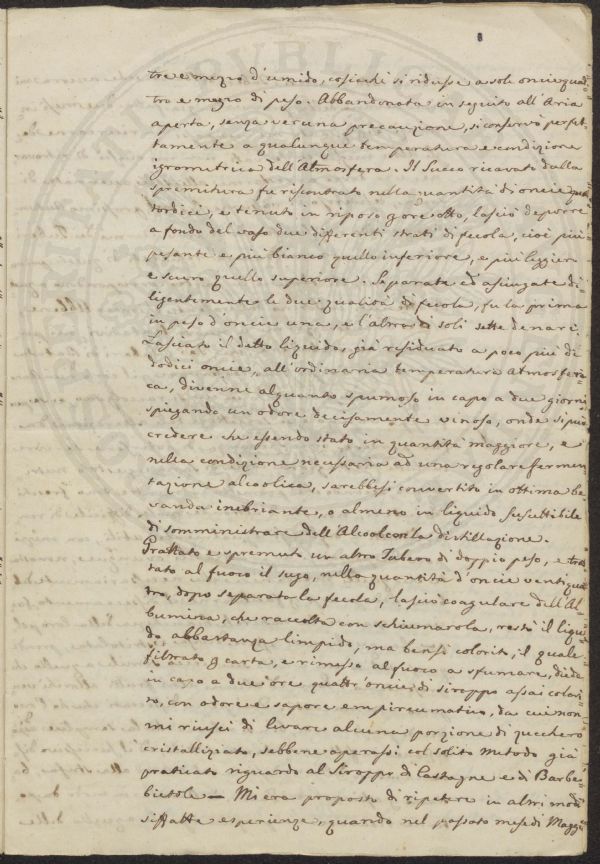 tre e mezzo d'umido, cosicché si ridusse a sole oncie quat=
tro e mezzo di peso. Abbandonata in seguito all'Aria
aperta, senza veruna precauzione, si conservò perfet=
tamente a qualunque temperatura e condizione
igrometrica dell'Atmosfera. Il Succo ricavato dalla
spremitura fu riscontrato nella quantità di oncie quat=
tordici, e tenuto in riposo p ore otto, lasciò deporre
a fondo del vaso due differenti strati di fecola, cioè più
pesante e più bianco quello inferiore, e più leggiero
e scuro quello superiore. Separate ed asciugate di=
ligentemente le due qualità di fecola, fu la prima
in peso d'oncie una, e l'altra di soli sette denari.
Lasciato il detto liquido, già residuato a poco più di
dodici oncie, all'ordinaria temperatura Atmosferi=
ca, divenne alquanto spumoso in capo a due giorni
spiegando un odore decisamente vinoso, onde si può
credere che essendo stato in quantità maggiore, e
nella condizione necessaria ad una regolare fermen=
tazione alcoolica, sarebbesi convertito in ottima be=
vanda inebriante, o almeno in liquido suscettibile
di somministrare dell'Alcool con la distillazione.
Grattato e spremuto un altro Tubero di doppio peso, e trat=
tato al fuoco il sugo, nella quantità d'oncie ventiquat=
tro, dopo separata la fecola, lasciò coagulare dell'Al=
bumina, che raccolta con schiumarola, restò il liqui=
do abbastanza limpido, ma bensì colorito, il quale
filtrato p carta, e rimesso al fuoco a sfumare, diede
in capo a due ore quattr'oncie di siroppo assai colori=
to, con odore e sapore empireumatico, da cui non
mi riuscì di livare alcuna porzione di zucchero
cristallizzato, sebbene operassi col solito metodo già
praticato riguardo al Siroppo di Castagne e di Barba=
bietole — Mi era proposto di ripetere in altri modi
siffatte esperienze, quando nel passato mese di Maggio